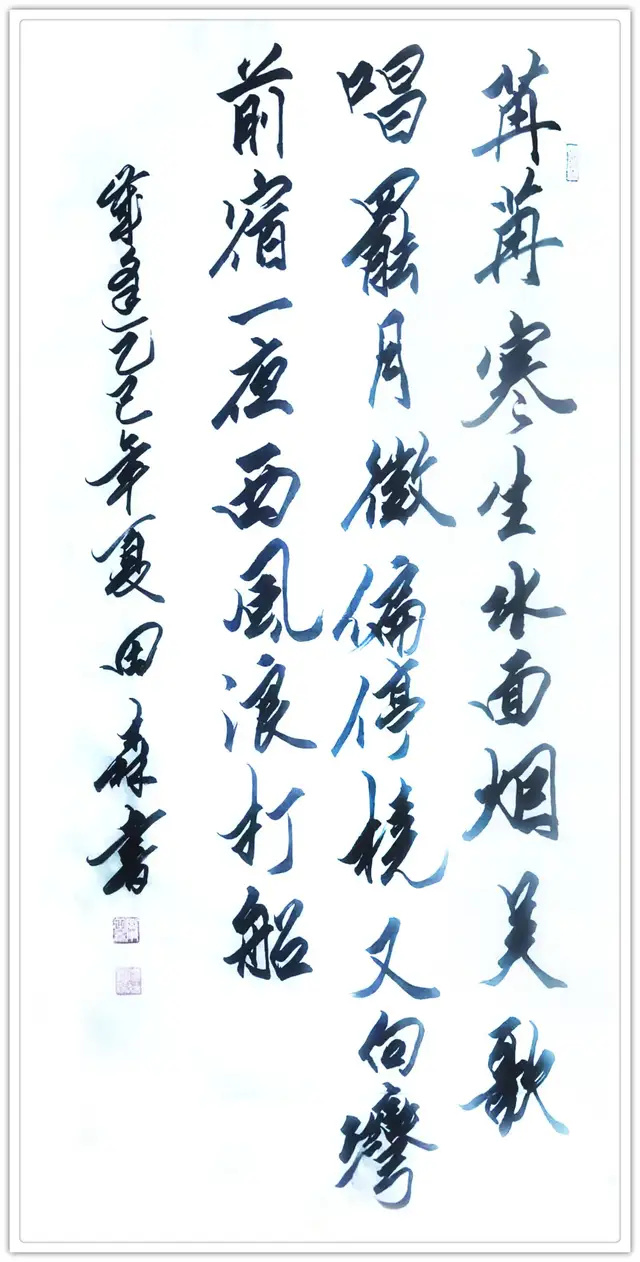 苒苒寒生水面烟吴歌
唱罷月微偏停橈又向壪
前宿一夜西風浪打船
歲逢乙巳年夏田森書